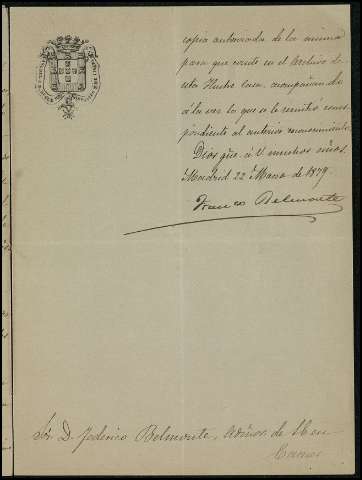 copia autorizada de la misma
para que conste en el Archivo de
esta Ilustre Casa, acompañando
á la vez la que se le remite corres
pondiente al anterior
Dios gue. á V. muchos años.
Madrid 22 Marzo de 1879.
Franco Belmonte
Sr. D. Federico Belmonte, Admor. de